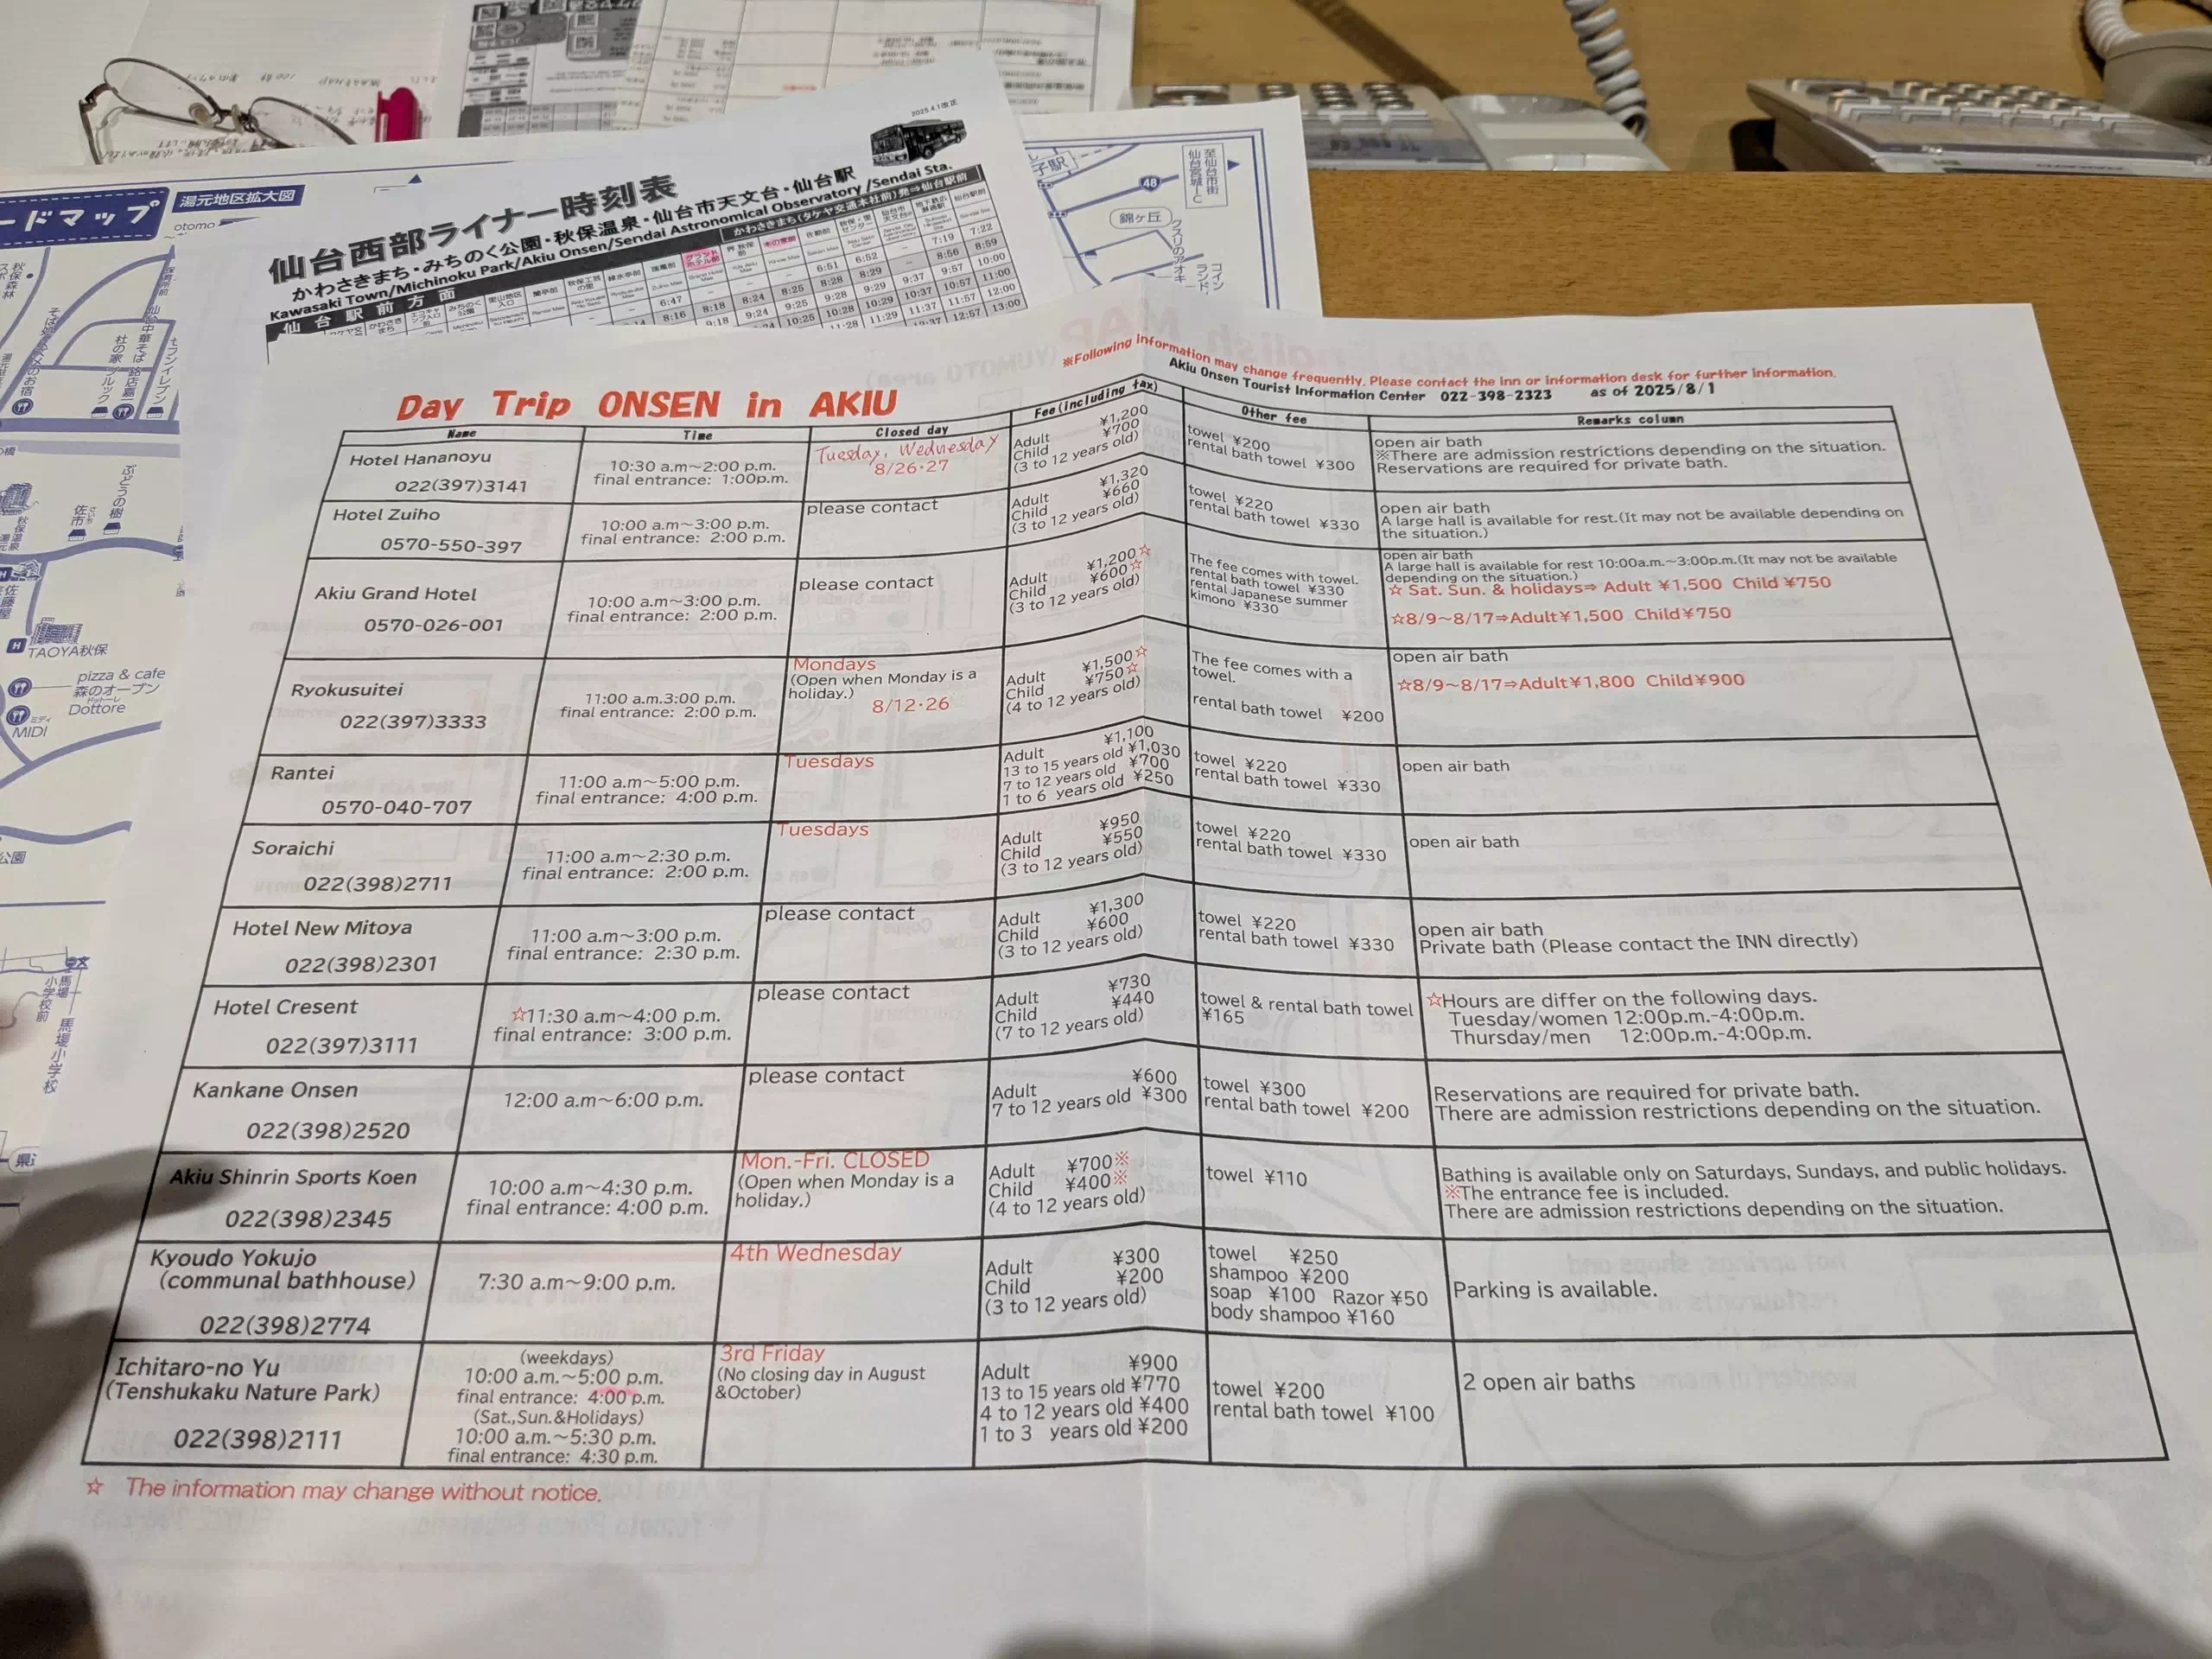 ードマップ
湯元地区拡大図
otomo
佐市
さいち
ぶどうの樹
TAOYA秋保
pizza & cafe
森のオーブン
Dottore
ミディ
MIDI
公園
2025.4.1改正
仙台西部ライナー時刻表
かわさきまち・みちのく公園・秋保温泉・仙台市天文台・仙台駅
Kawasaki Town/Michinoku Park/Akiu Onsen/Sendai Astronomical Observatory/Sendai Sta.
仙台駅前方面
かわさきまち(タケヤ交通本社前)発⇒仙台駅前
6:47 6:51 6:52 7:19 7:22
8:16 8:18 8:24 8:25 8:28 8:29 8:56 8:59
9:18 9:24 9:25 9:28 9:29 9:37 9:57 10:00
10:25 10:28 10:29 10:37 10:57 11:00
11:28 11:29 11:37 11:57 12:00
12:37 12:57 13:00
子駅
48
至仙台市街
仙台宮城IC
錦ヶ丘
クスリのアオキ
コインランド
※Following information may change frequently. Please contact the inn or information desk for further information.
Akiu Onsen Tourist Information Center 022-398-2323 as of 2025/8/1
Day Trip ONSEN in AKIU
Name Time Closed day Fee(including tax) Other fee Remarks column
Hotel Hananoyu
022(397)3141
10:30 a.m~2:00 p.m.
final entrance: 1:00p.m.
Tuesday, Wednesday
8/26・27
Adult ¥1,200
Child ¥700
(3 to 12 years old)
towel ¥200
rental bath towel ¥300
open air bath
※There are admission restrictions depending on the situation.
Reservations are required for private bath.
Hotel Zuiho
0570-550-397
10:00 a.m~3:00 p.m.
final entrance: 2:00 p.m.
please contact
Adult ¥1,320
Child ¥660
(3 to 12 years old)
towel ¥220
rental bath towel ¥330
open air bath
A large hall is available for rest.(It may not be available depending on
the situation.)
Akiu Grand Hotel
0570-026-001
10:00 a.m~3:00 p.m.
final entrance: 2:00 p.m.
please contact
Adult ¥1,200☆
Child ¥600☆
(3 to 12 years old)
The fee comes with towel.
rental bath towel ¥330
rental Japanese summer
kimono ¥330
open air bath
A large hall is available for rest 10:00a.m.~3:00p.m.(It may not be available
depending on the situation.)
☆ Sat. Sun. & holidays⇒ Adult ¥1,500 Child ¥750
☆8/9~8/17⇒Adult¥1,500 Child¥750
Ryokusuitei
022(397)3333
11:00 a.m.3:00 p.m.
final entrance: 2:00 p.m.
Mondays
(Open when Monday is a
holiday.)
8/12・26
Adult ¥1,500☆
Child ¥750☆
(4 to 12 years old)
The fee comes with a
towel.
rental bath towel ¥200
open air bath
☆8/9~8/17⇒Adult¥1,800 Child¥900
Rantei
0570-040-707
11:00 a.m~5:00 p.m.
final entrance: 4:00 p.m.
Tuesdays
Adult ¥1,100
13 to 15 years old ¥1,030
7 to 12 years old ¥700
1 to 6 years old ¥250
towel ¥220
rental bath towel ¥330
open air bath
Soraichi
022(398)2711
11:00 a.m~2:30 p.m.
final entrance: 2:00 p.m.
Tuesdays
Adult ¥950
Child ¥550
(3 to 12 years old)
towel ¥220
rental bath towel ¥330
open air bath
Hotel New Mitoya
022(398)2301
11:00 a.m~3:00 p.m.
final entrance: 2:30 p.m.
please contact
Adult ¥1,300
Child ¥600
(3 to 12 years old)
towel ¥220
rental bath towel ¥330
open air bath
Private bath (Please contact the INN directly)
Hotel Cresent
022(397)3111
☆11:30 a.m~4:00 p.m.
final entrance: 3:00 p.m.
please contact
Adult ¥730
Child ¥440
(7 to 12 years old)
towel & rental bath towel
¥165
☆Hours are differ on the following days.
Tuesday/women 12:00p.m.-4:00p.m.
Thursday/men 12:00p.m.-4:00p.m.
Kankane Onsen
022(398)2520
12:00 a.m~6:00 p.m.
please contact
Adult ¥600
7 to 12 years old ¥300
towel ¥300
rental bath towel ¥200
Reservations are required for private bath.
There are admission restrictions depending on the situation.
Akiu Shinrin Sports Koen
022(398)2345
10:00 a.m~4:30 p.m.
final entrance: 4:00 p.m.
Mon.-Fri. CLOSED
(Open when Monday is a
holiday.)
Adult ¥700※
Child ¥400※
(4 to 12 years old)
towel ¥110
Bathing is available only on Saturdays, Sundays, and public holidays.
※The entrance fee is included.
There are admission restrictions depending on the situation.
Kyoudo Yokujo
(communal bathhouse)
022(398)2774
7:30 a.m~9:00 p.m.
4th Wednesday
Adult ¥300
Child ¥200
(3 to 12 years old)
towel ¥250
shampoo ¥200
soap ¥100 Razor ¥50
body shampoo ¥160
Parking is available.
Ichitaro-no Yu
(Tenshukaku Nature Park)
022(398)2111
(weekdays)
10:00 a.m.~5:00 p.m.
final entrance: 4:00 p.m.
(Sat.,Sun.&Holidays)
10:00 a.m.~5:30 p.m.
final entrance: 4:30 p.m.
3rd Friday
(No closing day in August
&October)
Adult ¥900
13 to 15 years old ¥770
4 to 12 years old ¥400
1 to 3 years old ¥200
towel ¥200
rental bath towel ¥100
2 open air baths
☆ The information may change without notice.